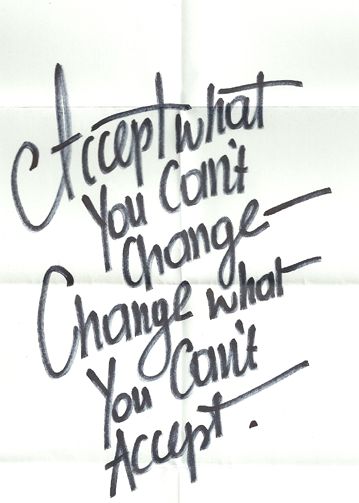 Accept what
You Can't
Change—
Change what
You Can't
Accept.